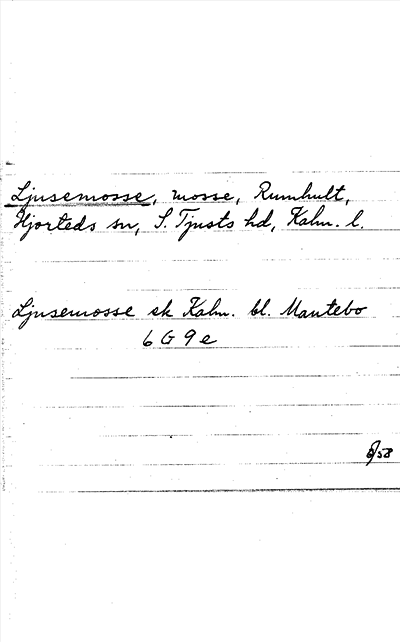 Ljusemosse, mosse, Rumhult,
Hjorteds sn, S. Tjusts hd, Kalm. l.
Ljusemosse ek Kalm. bl. Mantebo
6 G 9 e